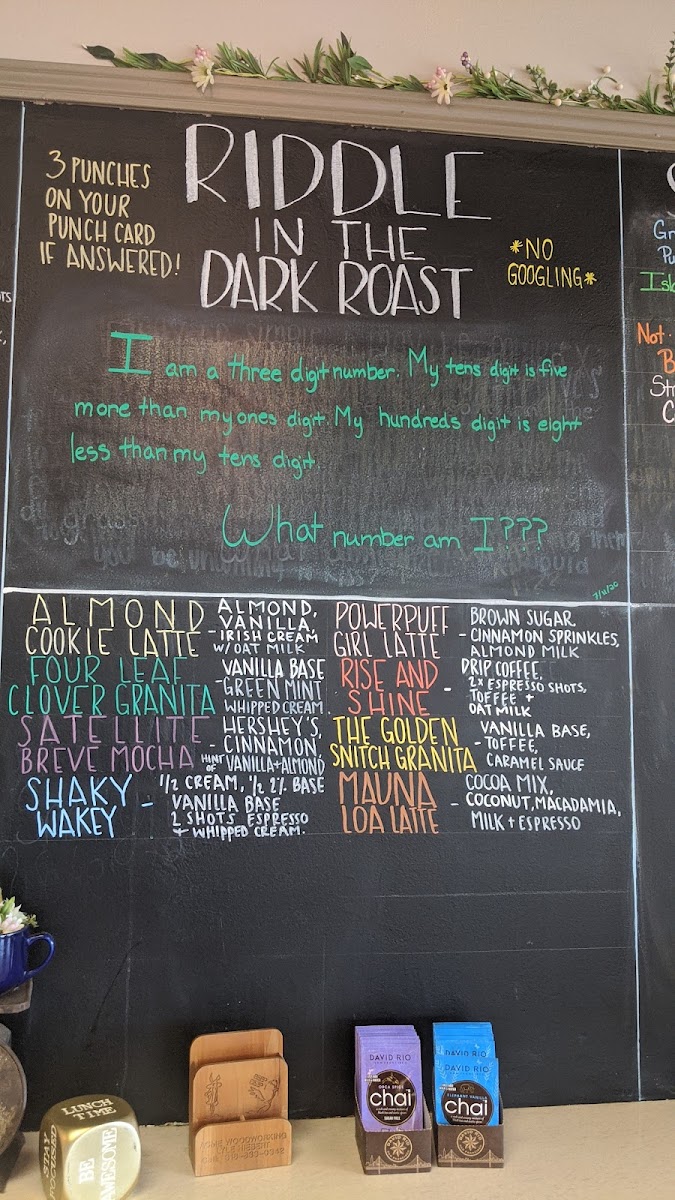 3 PUNCHES
ON YOUR
PUNCH CARD
IF ANSWERED!
RIDDLE
IN THE
DARK ROAST
*NO
GOOGLING*
I am a three digit number. My tens digit is five
more than my ones digit. My hundreds digit is eight
less than my tens digit.
What number am I???
7/11/20
ALMOND
COOKIE LATTE
- ALMOND,
VANILLA,
IRISH CREAM
W/OAT MILK
FOUR LEAF
CLOVER GRANITA
- VANILLA BASE
GREEN MINT
WHIPPED CREAM
SATELLITE
BREVE MOCHA
- HERSHEY'S,
CINNAMON,
HINT OF VANILLA+ALMOND
SHAKY
WAKEY
- 1/2 CREAM, 1/2 2% BASE
VANILLA BASE
2 SHOTS ESPRESSO
+ WHIPPED CREAM.
POWERPUFF
GIRL LATTE
- BROWN SUGAR
CINNAMON SPRINKLES,
ALMOND MILK
RISE AND
SHINE
- DRIP COFFEE,
2x ESPRESSO SHOTS,
TOFFEE +
OAT MILK
THE GOLDEN
SNITCH GRANITA
- VANILLA BASE,
TOFFEE,
CARAMEL SAUCE
MAUNA
LOA LATTE
- COCOA MIX,
COCONUT, MACADAMIA,
MILK + ESPRESSO
Not
LUNCH
TIME
BE
AWESOME
STAY
FOCUSED
DAVID RIO
ORCA SPICE
chai
SUGAR FREE
DAVID RIO
DAVID RIO
ELEPHANT VANILLA
chai